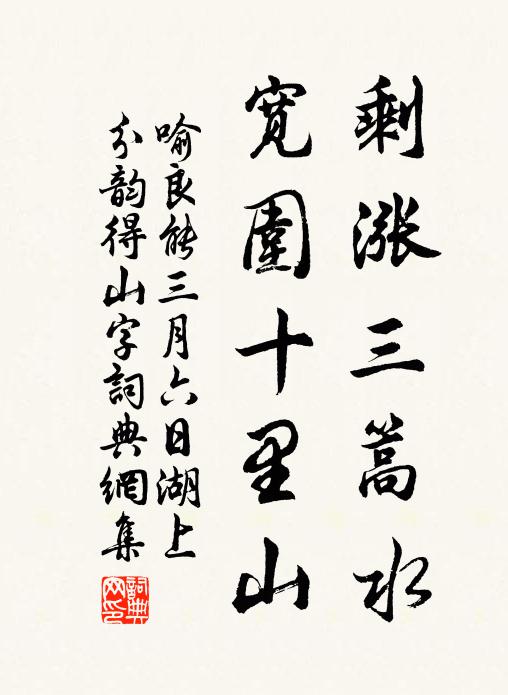 剩漲三篙水
寬圍十里山
喻良能三月六日湖上
分韵得山字詞典網集
詞典網印